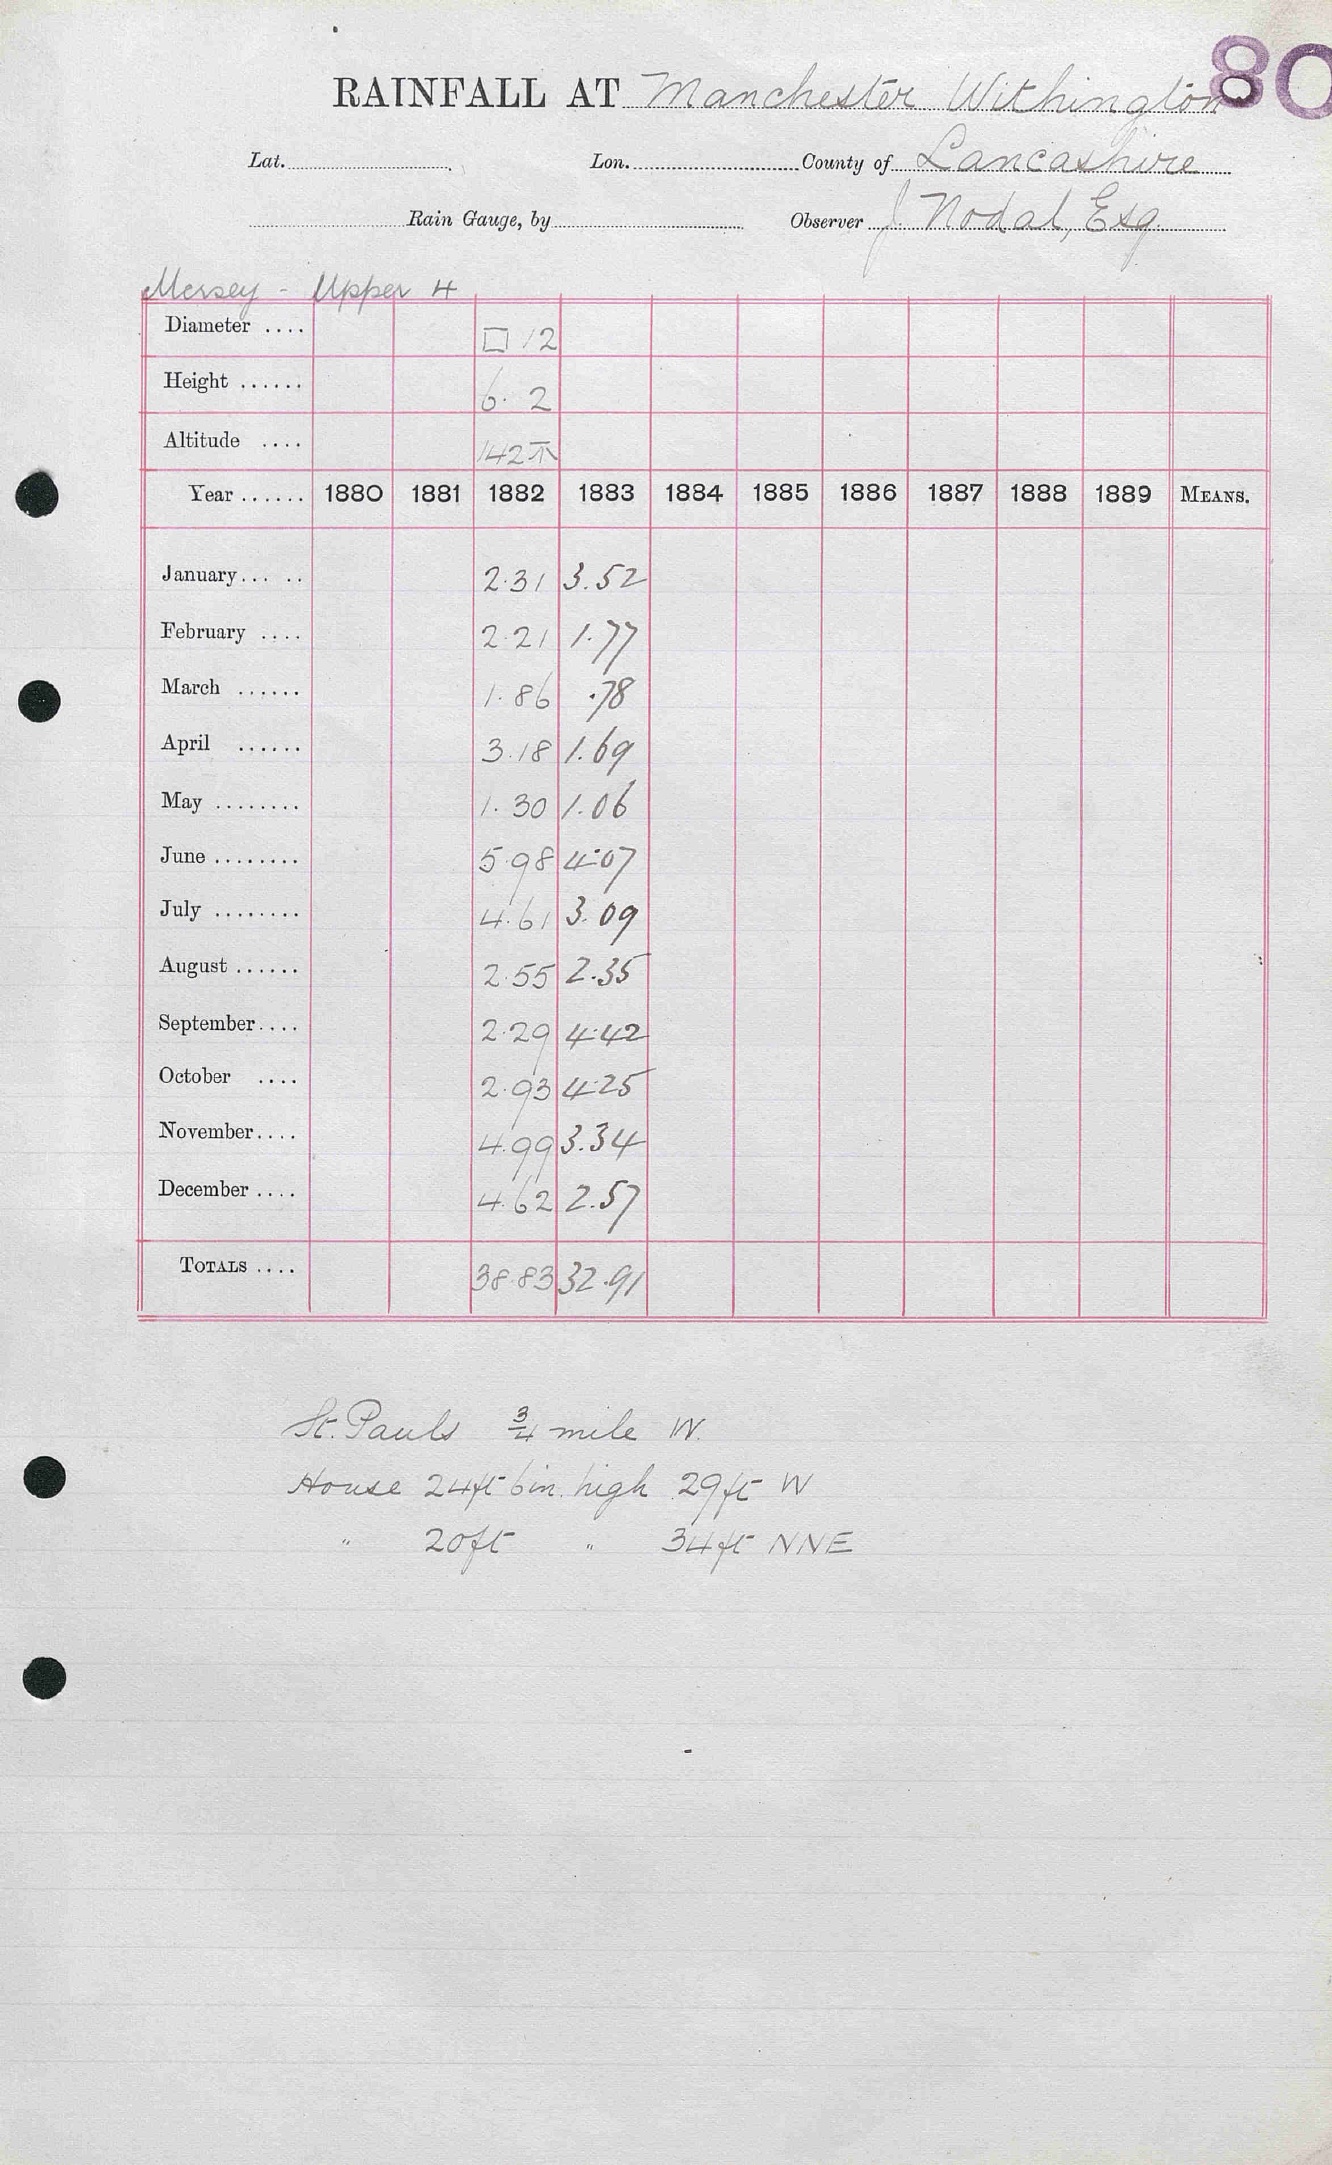 80
RAINFALL AT Manchester Withington
Lat. Lon. County of Lancashire
Rain Gauge, by Observer J. Nodal, Esq.
Mersey - Upper 4
Diameter .... □ 12
Height ...... 6. 2
Altitude .... 142
Year ...... 1880 1881 1882 1883 1884 1885 1886 1887 1888 1889 MEANS.
January... .. 2.31 3.52
February .... 2.21 1.77
March ...... 1.86 .78
April ...... 3.18 1.69
May ........ 1.30 1.06
June ........ 5.98 4.07
July ........ 4.61 3.09
August ...... 2.55 2.35
September.... 2.29 4.42
October .... 2.93 4.25
November.... 4.99 3.34
December .... 4.62 2.57
TOTALS .... 38.83 32.91
St. Pauls 3/4 mile W.
House 24ft 6in. high 29ft W
" 20ft " 34ft NNE